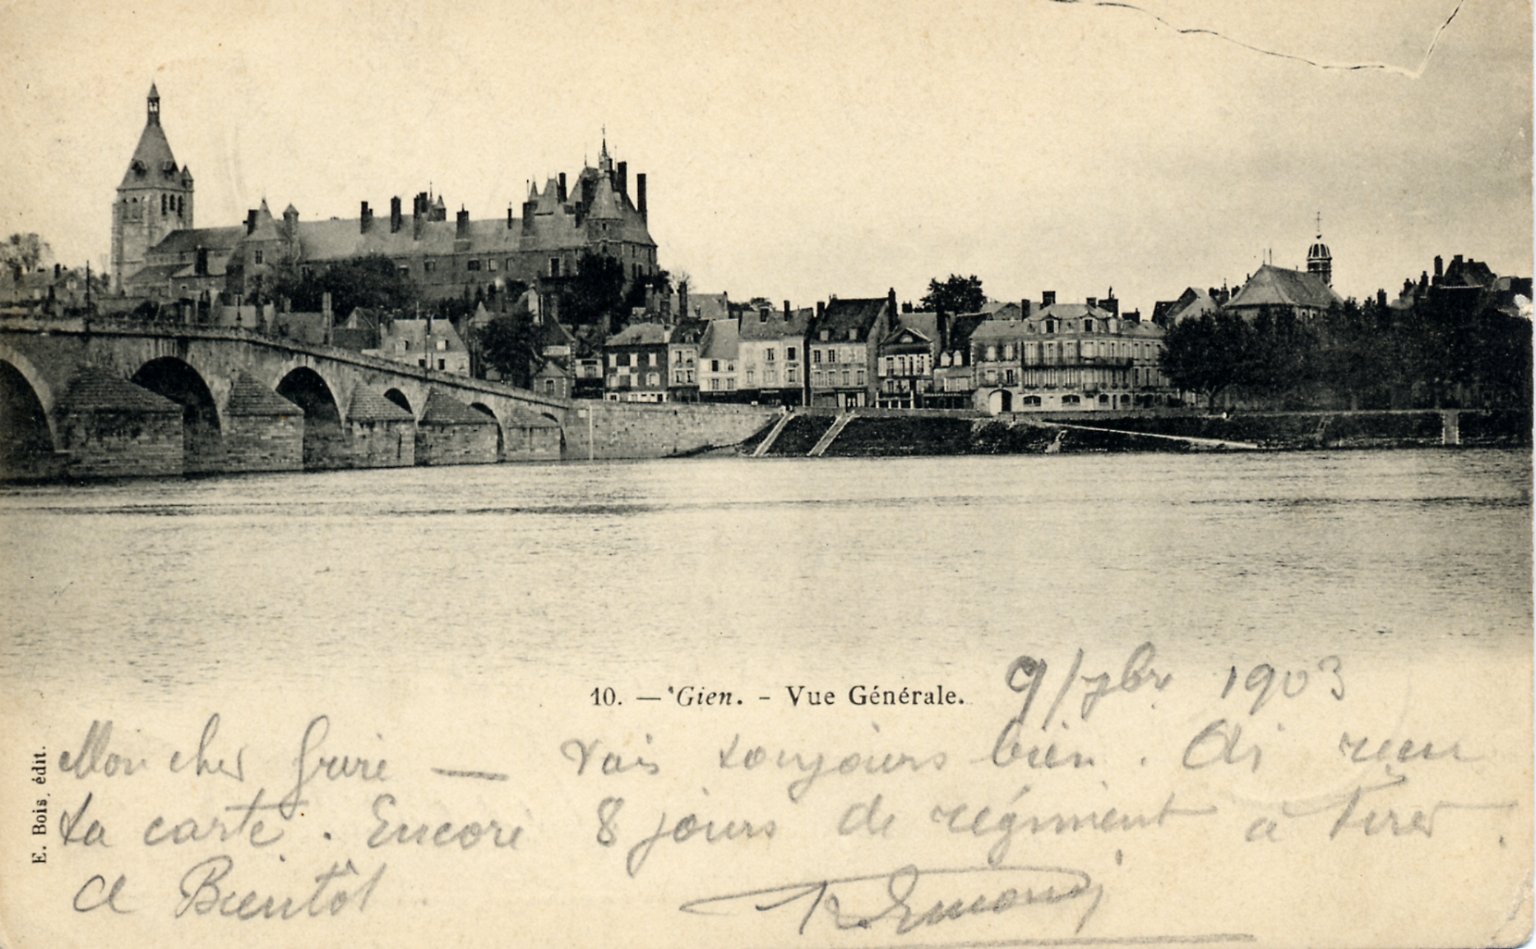 10. — Gien. - Vue Générale.
9/7bre 1903
Mon cher frère — Vais toujours bien. Ai reçu
ta carte. Encore 8 jours de régiment à tirer.
A Bientôt
E. Bois, édit.